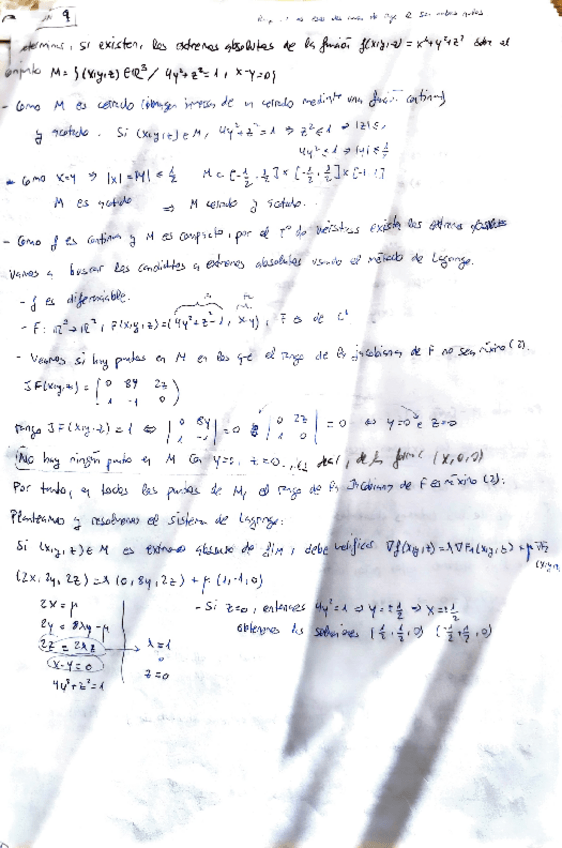 9
determina, si existen, los extremos absolutos de la función f(x,y,z) = x²+y²+z² sobre el
conjunto M = {(x,y,z) ∈ ℝ³ / 4y²+z²=1, x-y=0}
- Como M es cerrado (imagen inversa de un cerrado mediante una función continua)
y acotado. Si (x,y,z) ∈ M, 4y²+z²=1 ⇒ z² ≤ 1 ⇒ |z| ≤ 1
4y² ≤ 1 ⇒ |y| ≤ 1/2
- Como x=y ⇒ |x|=|y| ≤ 1/2 M ⊂ [-1/2, 1/2] × [-1/2, 1/2] × [-1, 1]
M es acotado ⇒ M cerrado y acotado.
- Como f es continua y M es compacto, por el Tª de Weierstrass existen los extremos absolutos
Vamos a buscar los candidatos a extremos absolutos usando el método de Lagrange.
- f es diferenciable.
- F: ℝ³→ℝ², F(x,y,z) = (4y²+z²-1, x-y), F es de C¹
- Veamos si hay puntos en M en los que el rango de la jacobiana de F no sea máximo (2).
JF(x,y,z) = (0 8y 2z
1 -1 0)
rango JF(x,y,z)=1 ⇔ |0 8y
1 -1| = 0 |0 2z
1 0| = 0 ⇔ y=0 e z=0
No hay ningún punto en M con y=0, z=0, es decir, de la forma (x,0,0)
Por tanto, en todos los puntos de M, el rango de la Jacobiana de F es máximo (2).
Planteamos y resolvemos el sistema de Lagrange:
Si (x,y,z) ∈ M es extremo absoluto de f|M, debe verificar ∇f(x,y,z) = λ∇F₁(x,y,z) + μ∇F₂
(x,y,z)
(2x, 2y, 2z) = λ(0, 8y, 2z) + μ(1,-1,0)
2x = μ
2y = 8λy - μ
2z = 2λz
x-y=0
4y²+z²=1
λ=1
o
z=0
- Si z=0, entonces 4y²=1 ⇒ y=±1/2 ⇒ x=±1/2
obtenemos las soluciones (1/2, 1/2, 0) (-1/2, -1/2, 0)